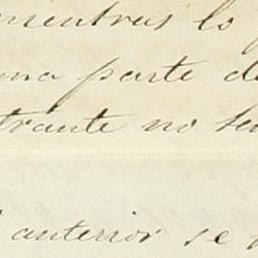 mientras lo
una parte de
trante no se
anterior se